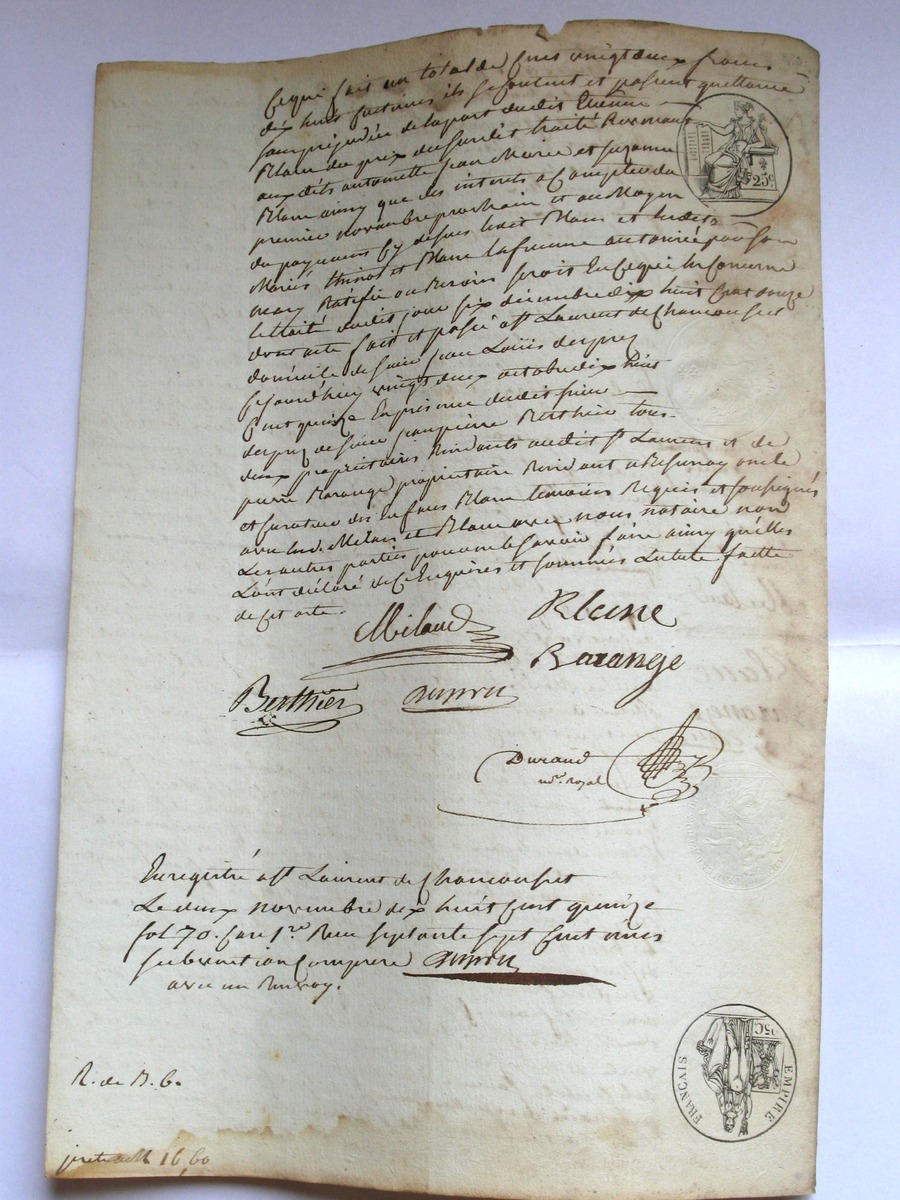 Cequi fait un total de cens vingt deux francs
dix huit centimes ils se contentent et passent quittance
sans préjudice de la part dudit Etienne
Blanc du prix du susdit traité Revenant
aux dits antoinette Jean Marie et suzanne
Blanc ainsy que des interets a Compter du
premier novembre prochain et au Moyen
du payement Cy dessus lesdt Blanc et ledit
Mariés et Blanc la femme autorisée par son
mary Ratifie ou Besoins seroit En Cequi les Concerne
le traité dudit jour six décembre dix huit Cent douze
dont acte fait et passé a St Laurent de Chamousset
domicile de sieur Jean Loüis desprez
Cejourdhuy vingt deux octobre dix huit
Cent quinze En présence dudit sieur
desprez de sieur Jean pierre Berthier tous
deux propriétaires Residants audit St Laurent et de
pierre Barange propriétaire Residant a Bessenay oncle
et curateur des Enfans Blanc temoins Requis et soussignés
avec lesd. Milan et Blanc avec nous notaire non
Les autres parties pour ne le savoir faire ainsy qu'elles
L'ont déclaré de Ce Enquises et sommées Lecture faitte
de cet acte.
Miland Blanc
Barange
Berthier
Durand
nore. Royal
Enregistré a St Laurent de Chamousset
Le deux novembre dix huit Cent quinze
fol. 70. Case 1re. Reçu septante sept Cent
subvention Comprise
avec un Renvoy.
R. de B. 6.
16,60
25c
EMPIRE FRANÇAIS
25C